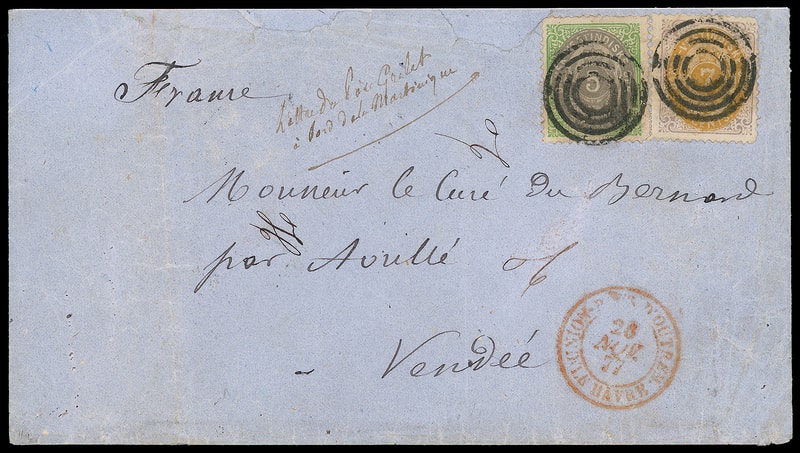 France
Lettre du Père Prélet
à bord de la Martinique
Monsieur le Curé du Bernard
par Avrillé
Vendéé
28
77
5
7